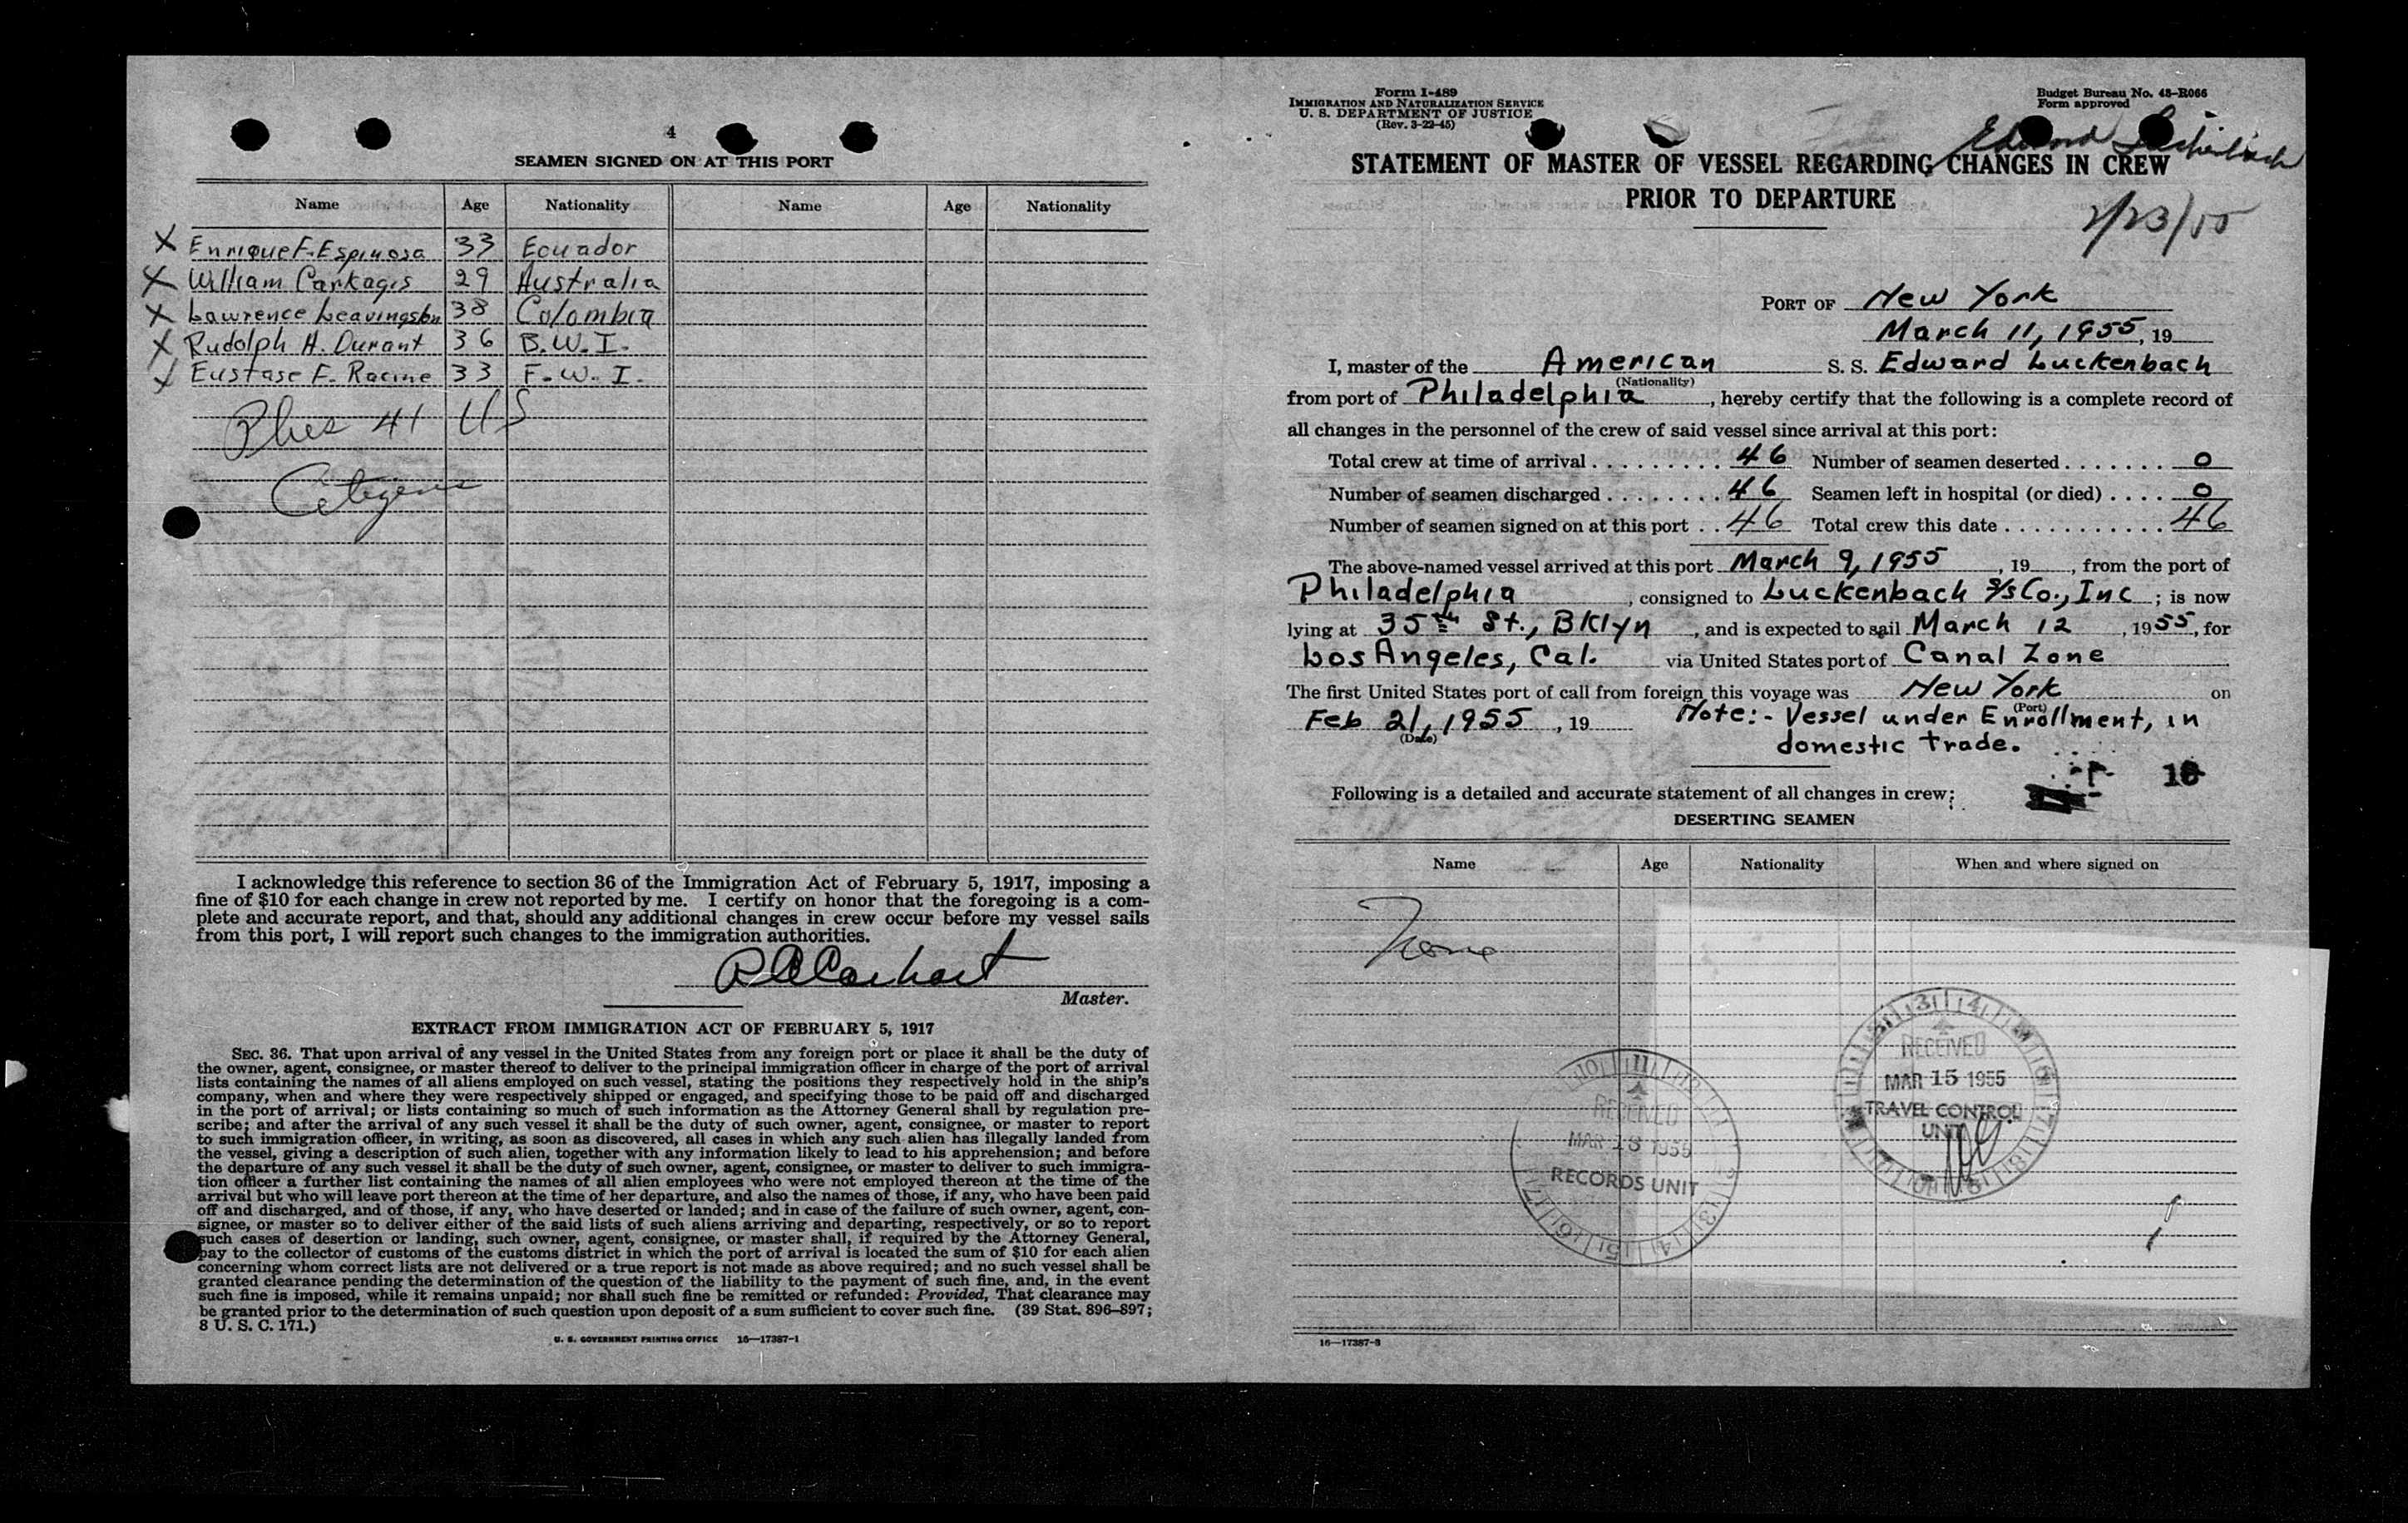 4
SEAMEN SIGNED ON AT THIS PORT
Name Age Nationality Name Age Nationality
X Enrique F. Espinosa 33 Ecuador
X William Carkagis 29 Australia
X Lawrence Leavingston 38 Colombia
X Rudolph H. Durant 36 B.W.I.
X Eustase F. Racine 33 F.W.I.
Plus 41 US
Citizens
I acknowledge this reference to section 36 of the Immigration Act of February 5, 1917, imposing a
fine of $10 for each change in crew not reported by me. I certify on honor that the foregoing is a com-
plete and accurate report, and that, should any additional changes in crew occur before my vessel sails
from this port, I will report such changes to the immigration authorities.
Master.
EXTRACT FROM IMMIGRATION ACT OF FEBRUARY 5, 1917
SEC. 36. That upon arrival of any vessel in the United States from any foreign port or place it shall be the duty of
the owner, agent, consignee, or master thereof to deliver to the principal immigration officer in charge of the port of arrival
lists containing the names of all aliens employed on such vessel, stating the positions they respectively hold in the ship's
company, when and where they were respectively shipped or engaged, and specifying those to be paid off and discharged
in the port of arrival; or lists containing so much of such information as the Attorney General shall by regulation pre-
scribe; and after the arrival of any such vessel it shall be the duty of such owner, agent, consignee, or master to report
to such immigration officer, in writing, as soon as discovered, all cases in which any such alien has illegally landed from
the vessel, giving a description of such alien, together with any information likely to lead to his apprehension; and before
the departure of any such vessel it shall be the duty of such owner, agent, consignee, or master to deliver to such immigra-
tion officer a further list containing the names of all alien employees who were not employed thereon at the time of the
arrival but who will leave port thereon at the time of her departure, and also the names of those, if any, who have been paid
off and discharged, and of those, if any, who have deserted or landed; and in case of the failure of such owner, agent, con-
signee, or master so to deliver either of the said lists of such aliens arriving and departing, respectively, or so to report
such cases of desertion or landing, such owner, agent, consignee, or master shall, if required by the Attorney General,
pay to the collector of customs of the customs district in which the port of arrival is located the sum of $10 for each alien
concerning whom correct lists are not delivered or a true report is not made as above required; and no such vessel shall be
granted clearance pending the determination of the question of the liability to the payment of such fine, and, in the event
such fine is imposed, while it remains unpaid; nor shall such fine be remitted or refunded: Provided, That clearance may
be granted prior to the determination of such question upon deposit of a sum sufficient to cover such fine. (39 Stat. 896–897;
8 U. S. C. 171.)
U. S. GOVERNMENT PRINTING OFFICE 16—17387-1
Form I-489
IMMIGRATION AND NATURALIZATION SERVICE
U. S. DEPARTMENT OF JUSTICE
(Rev. 3-22-45)
Budget Bureau No. 43–R066
Form approved
Edward Luckenbach
STATEMENT OF MASTER OF VESSEL REGARDING CHANGES IN CREW
PRIOR TO DEPARTURE
2/23/55
PORT OF New York
March 11, 1955, 19
I, master of the American S. S. Edward Luckenbach
(Nationality)
from port of Philadelphia, hereby certify that the following is a complete record of
all changes in the personnel of the crew of said vessel since arrival at this port:
Total crew at time of arrival . . . . . . . . . . 46 Number of seamen deserted . . . . . . . 0
Number of seamen discharged . . . . . . . . 46 Seamen left in hospital (or died) . . . . 0
Number of seamen signed on at this port . . 46 Total crew this date . . . . . . . . . . . . 46
The above-named vessel arrived at this port March 9, 1955, 19, from the port of
Philadelphia, consigned to Luckenbach S/S Co., Inc; is now
lying at 35th St., Bklyn, and is expected to sail March 12, 1955, for
Los Angeles, Cal. via United States port of Canal Zone
The first United States port of call from foreign this voyage was New York on
(Port)
Feb 21, 1955, 19 Note:- Vessel under Enrollment, in
(Date)
domestic trade.
18
Following is a detailed and accurate statement of all changes in crew:
DESERTING SEAMEN
Name Age Nationality When and where signed on
None
RECEIVED
MAR 15 1955
TRAVEL CONTROL
UNIT
RECEIVED
MAR 18 1955
RECORDS UNIT
16—17387-3